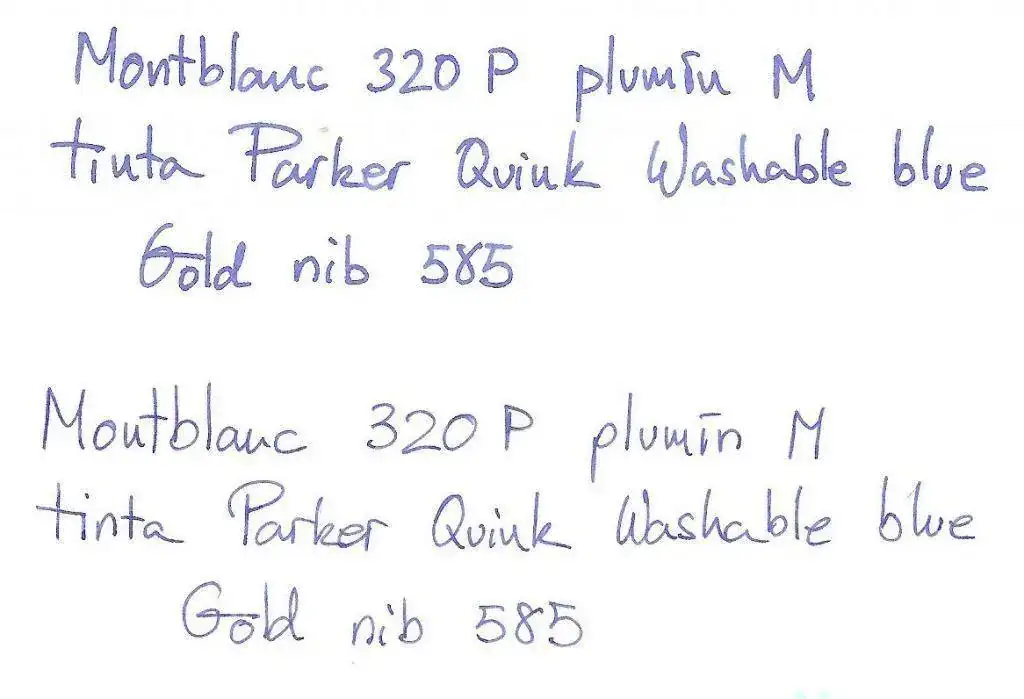 Montblanc 320 P plumín M
tinta Parker Quink Washable blue
Gold nib 585
Montblanc 320 P plumín M
tinta Parker Quink Washable blue
Gold nib 585